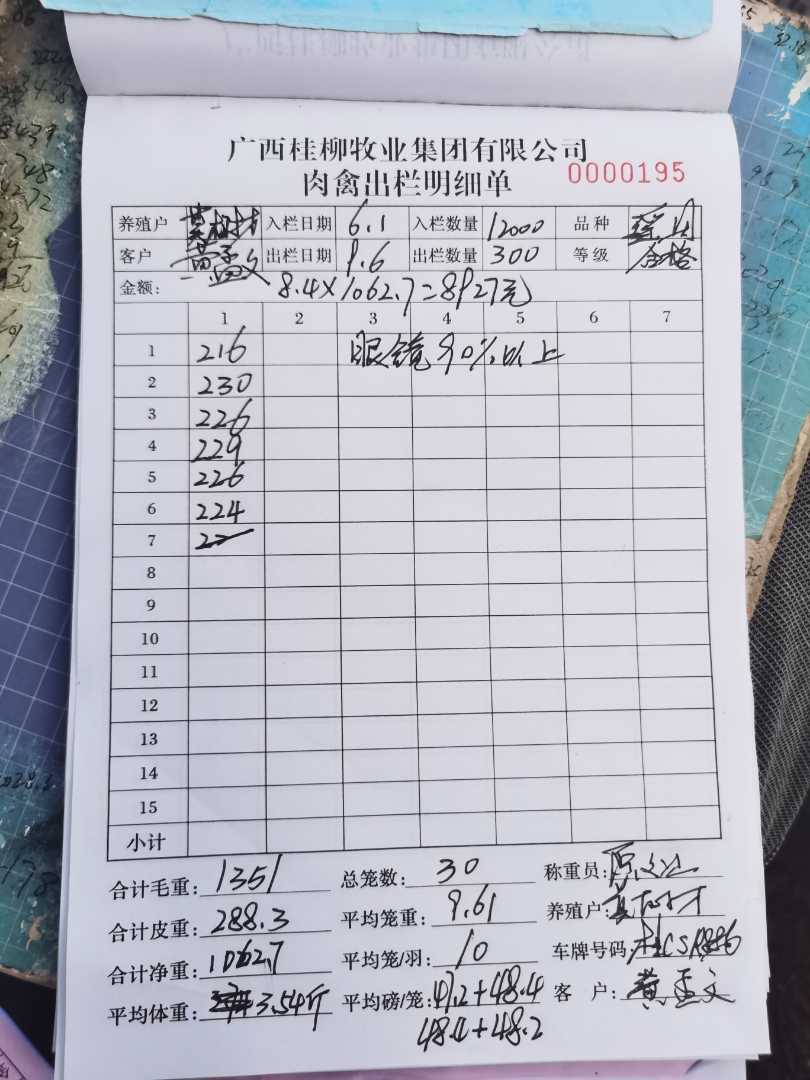 广西桂柳牧业集团有限公司
肉禽出栏明细单 0000195
养殖户 入栏日期 6.1 入栏数量 12000 品种
客户 黄孟文 出栏日期 9.6 出栏数量 300 等级 合格
金额: 8.4×1062.7=8927元
1 2 3 4 5 6 7
1 216 眼镜90%以上
2 230
3 226
4 229
5 226
6 224
7
8
9
10
11
12
13
14
15
小计
合计毛重: 1351 总笼数: 30 称重员:
合计皮重: 288.3 平均笼重: 9.61 养殖户:
合计净重: 1062.7 平均笼/羽: 10 车牌号码:
平均体重: 3.54斤 平均磅/笼: 47.2+48.4 客 户: 黄孟文
48.4+48.2